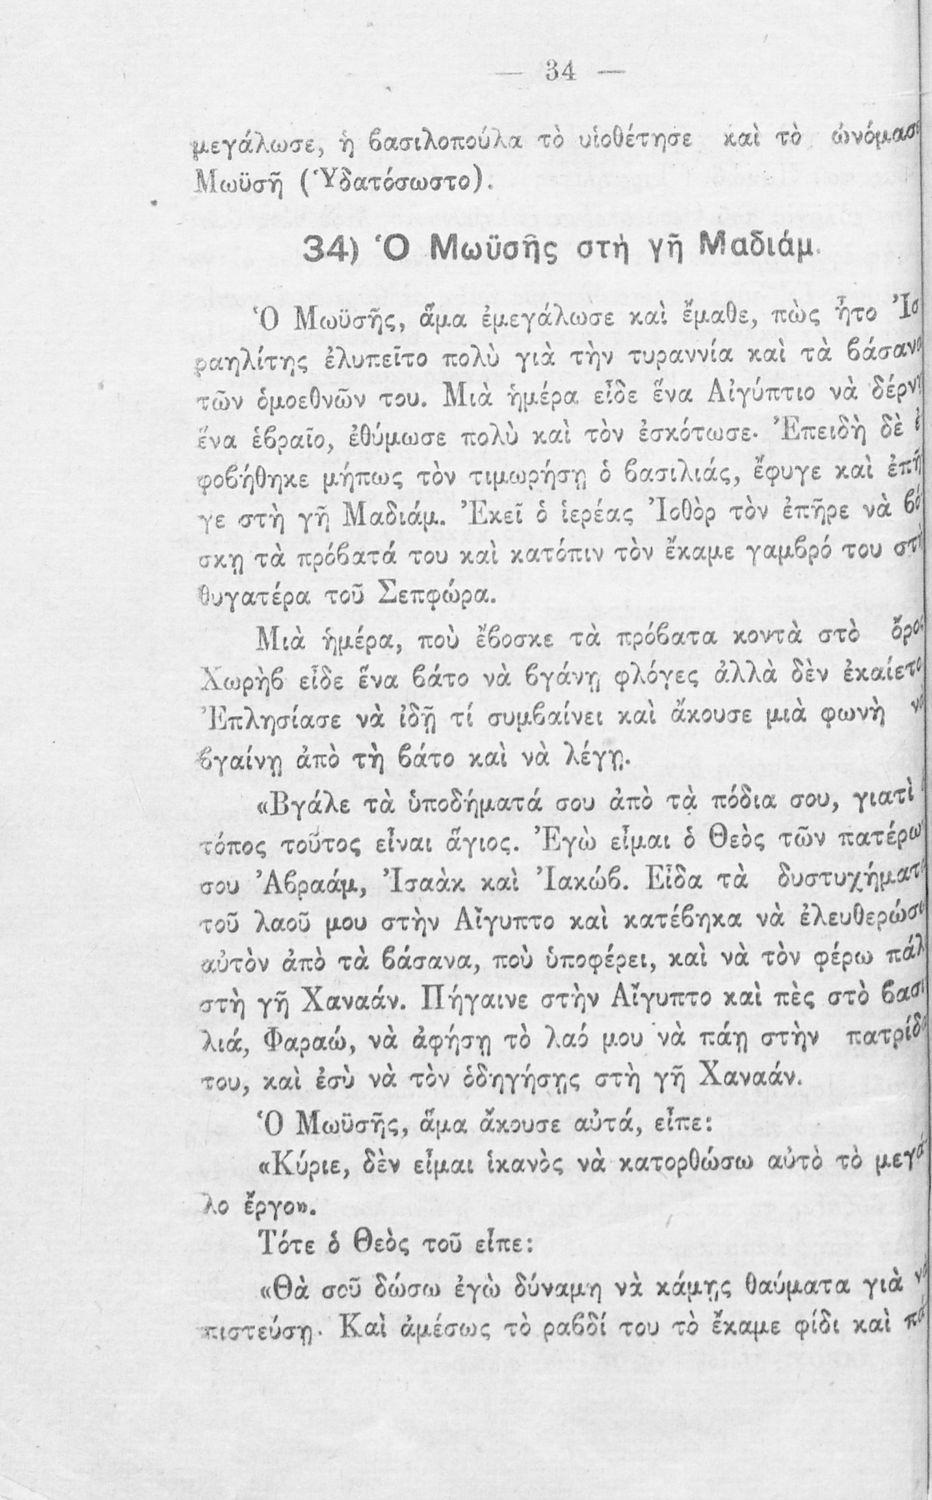 — 34 —
μεγάλωσε, ἡ βασιλοπούλα τὸ υἱοθέτησε καὶ τὸ ὠνόμασ
Μωϋσῆ (Ὑδατόσωστο).
34) Ὁ Μωϋσῆς στὴ γῆ Μαδιάμ.
Ὁ Μωϋσῆς, ἅμα ἐμεγάλωσε καὶ ἔμαθε, πὼς ἦτο Ἰσ
ραηλίτης ἐλυπεῖτο πολὺ γιὰ τὴν τυραννία καὶ τὰ βάσαν
τῶν ὁμοεθνῶν του. Μιὰ ἡμέρα εἶδε ἕνα Αἰγύπτιο νὰ δέρν
ἕνα ἑβραῖο, ἐθύμωσε πολὺ καὶ τὸν ἐσκότωσε. Ἐπειδὴ δὲ ἐ
φοβήθηκε μήπως τὸν τιμωρήσῃ ὁ βασιλιάς, ἔφυγε καὶ ἐπῆ
γε στὴ γῆ Μαδιάμ. Ἐκεῖ ὁ ἱερέας Ἰοθὸρ τὸν ἐπῆρε νὰ βό
σκῃ τὰ πρόβατά του καὶ κατόπιν τὸν ἔκαμε γαμβρό του στὴ
θυγατέρα τοῦ Σεπφώρα.
Μιὰ ἡμέρα, ποὺ ἔβοσκε τὰ πρόβατα κοντὰ στὸ ὄρος
Χωρὴβ εἶδε ἕνα βάτο νὰ βγάνῃ φλόγες ἀλλὰ δὲν ἐκαίετο
Ἐπλησίασε νὰ ἰδῇ τί συμβαίνει καὶ ἄκουσε μιὰ φωνὴ νὰ
βγαίνῃ ἀπὸ τὴ βάτο καὶ νὰ λέγῃ.
«Βγάλε τὰ ὑποδήματά σου ἀπὸ τὰ πόδια σου, γιατὶ
τόπος τοῦτος εἶναι ἅγιος. Ἐγὼ εἶμαι ὁ Θεὸς τῶν πατέρω
σου Ἀβραάμ, Ἰσαὰκ καὶ Ἰακώβ. Εἶδα τὰ δυστυχήματ
τοῦ λαοῦ μου στὴν Αἴγυπτο καὶ κατέβηκα νὰ ἐλευθερώσ
αὐτὸν ἀπὸ τὰ βάσανα, ποὺ ὑποφέρει, καὶ νὰ τὸν φέρω πάλ
στὴ γῆ Χαναάν. Πήγαινε στὴν Αἴγυπτο καὶ πὲς στὸ βασι
λιά, Φαραώ, νὰ ἀφήσῃ τὸ λαό μου νὰ πάῃ στὴν πατρίδ
του, καὶ ἐσὺ νὰ τὸν ὁδηγήσῃς στὴ γῆ Χαναάν.
Ὁ Μωϋσῆς, ἅμα ἄκουσε αὐτά, εἶπε:
«Κύριε, δὲν εἶμαι ἱκανὸς νὰ κατορθώσω αὐτὸ τὸ μεγά
λο ἔργο».
Τότε ὁ Θεὸς τοῦ εἶπε:
«Θὰ σοῦ δώσω ἐγὼ δύναμη νὰ κάμῃς θαύματα γιὰ νὰ
πιστεύσῃ. Καὶ ἀμέσως τὸ ραβδί του τὸ ἔκαμε φίδι καὶ πά